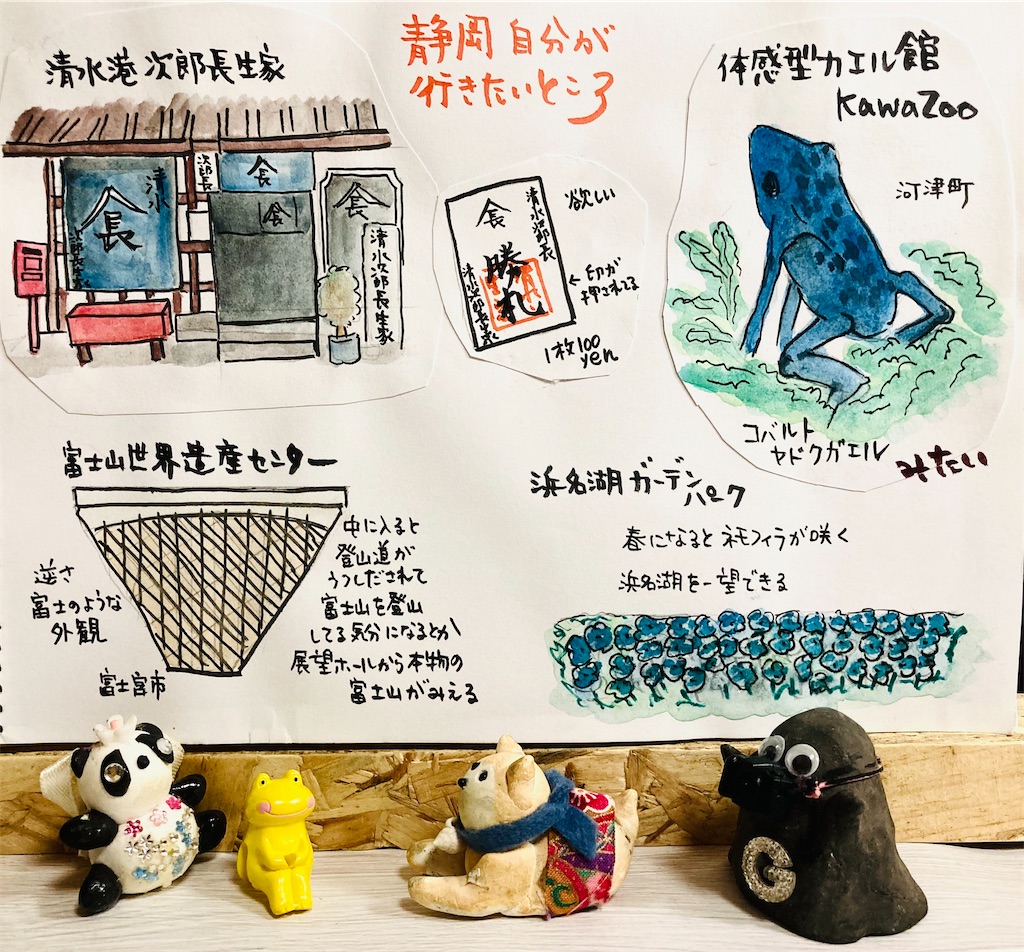 静岡 自分が
行きたいところ
清水港次郎長生家
清水
長
次郎長生家
次郎長
長
長
長
清水次郎長生家
長
清水次郎長
勝札
清水次郎長生家
欲しい
←印が
押されてる
1枚100
yen
体感型カエル館
KawaZoo
河津町
コバルト
ヤドクガエル
みたい
富士山世界遺産センター
逆さ
富士のような
外観
富士宮市
中に入ると
登山道が
うつしだされて
富士山を登山
してる気分になるとか
展望ホールから本物の
富士山がみえる
浜名湖ガーデン
パーク
春になるとネモフィラが咲く
浜名湖を一望できる
G